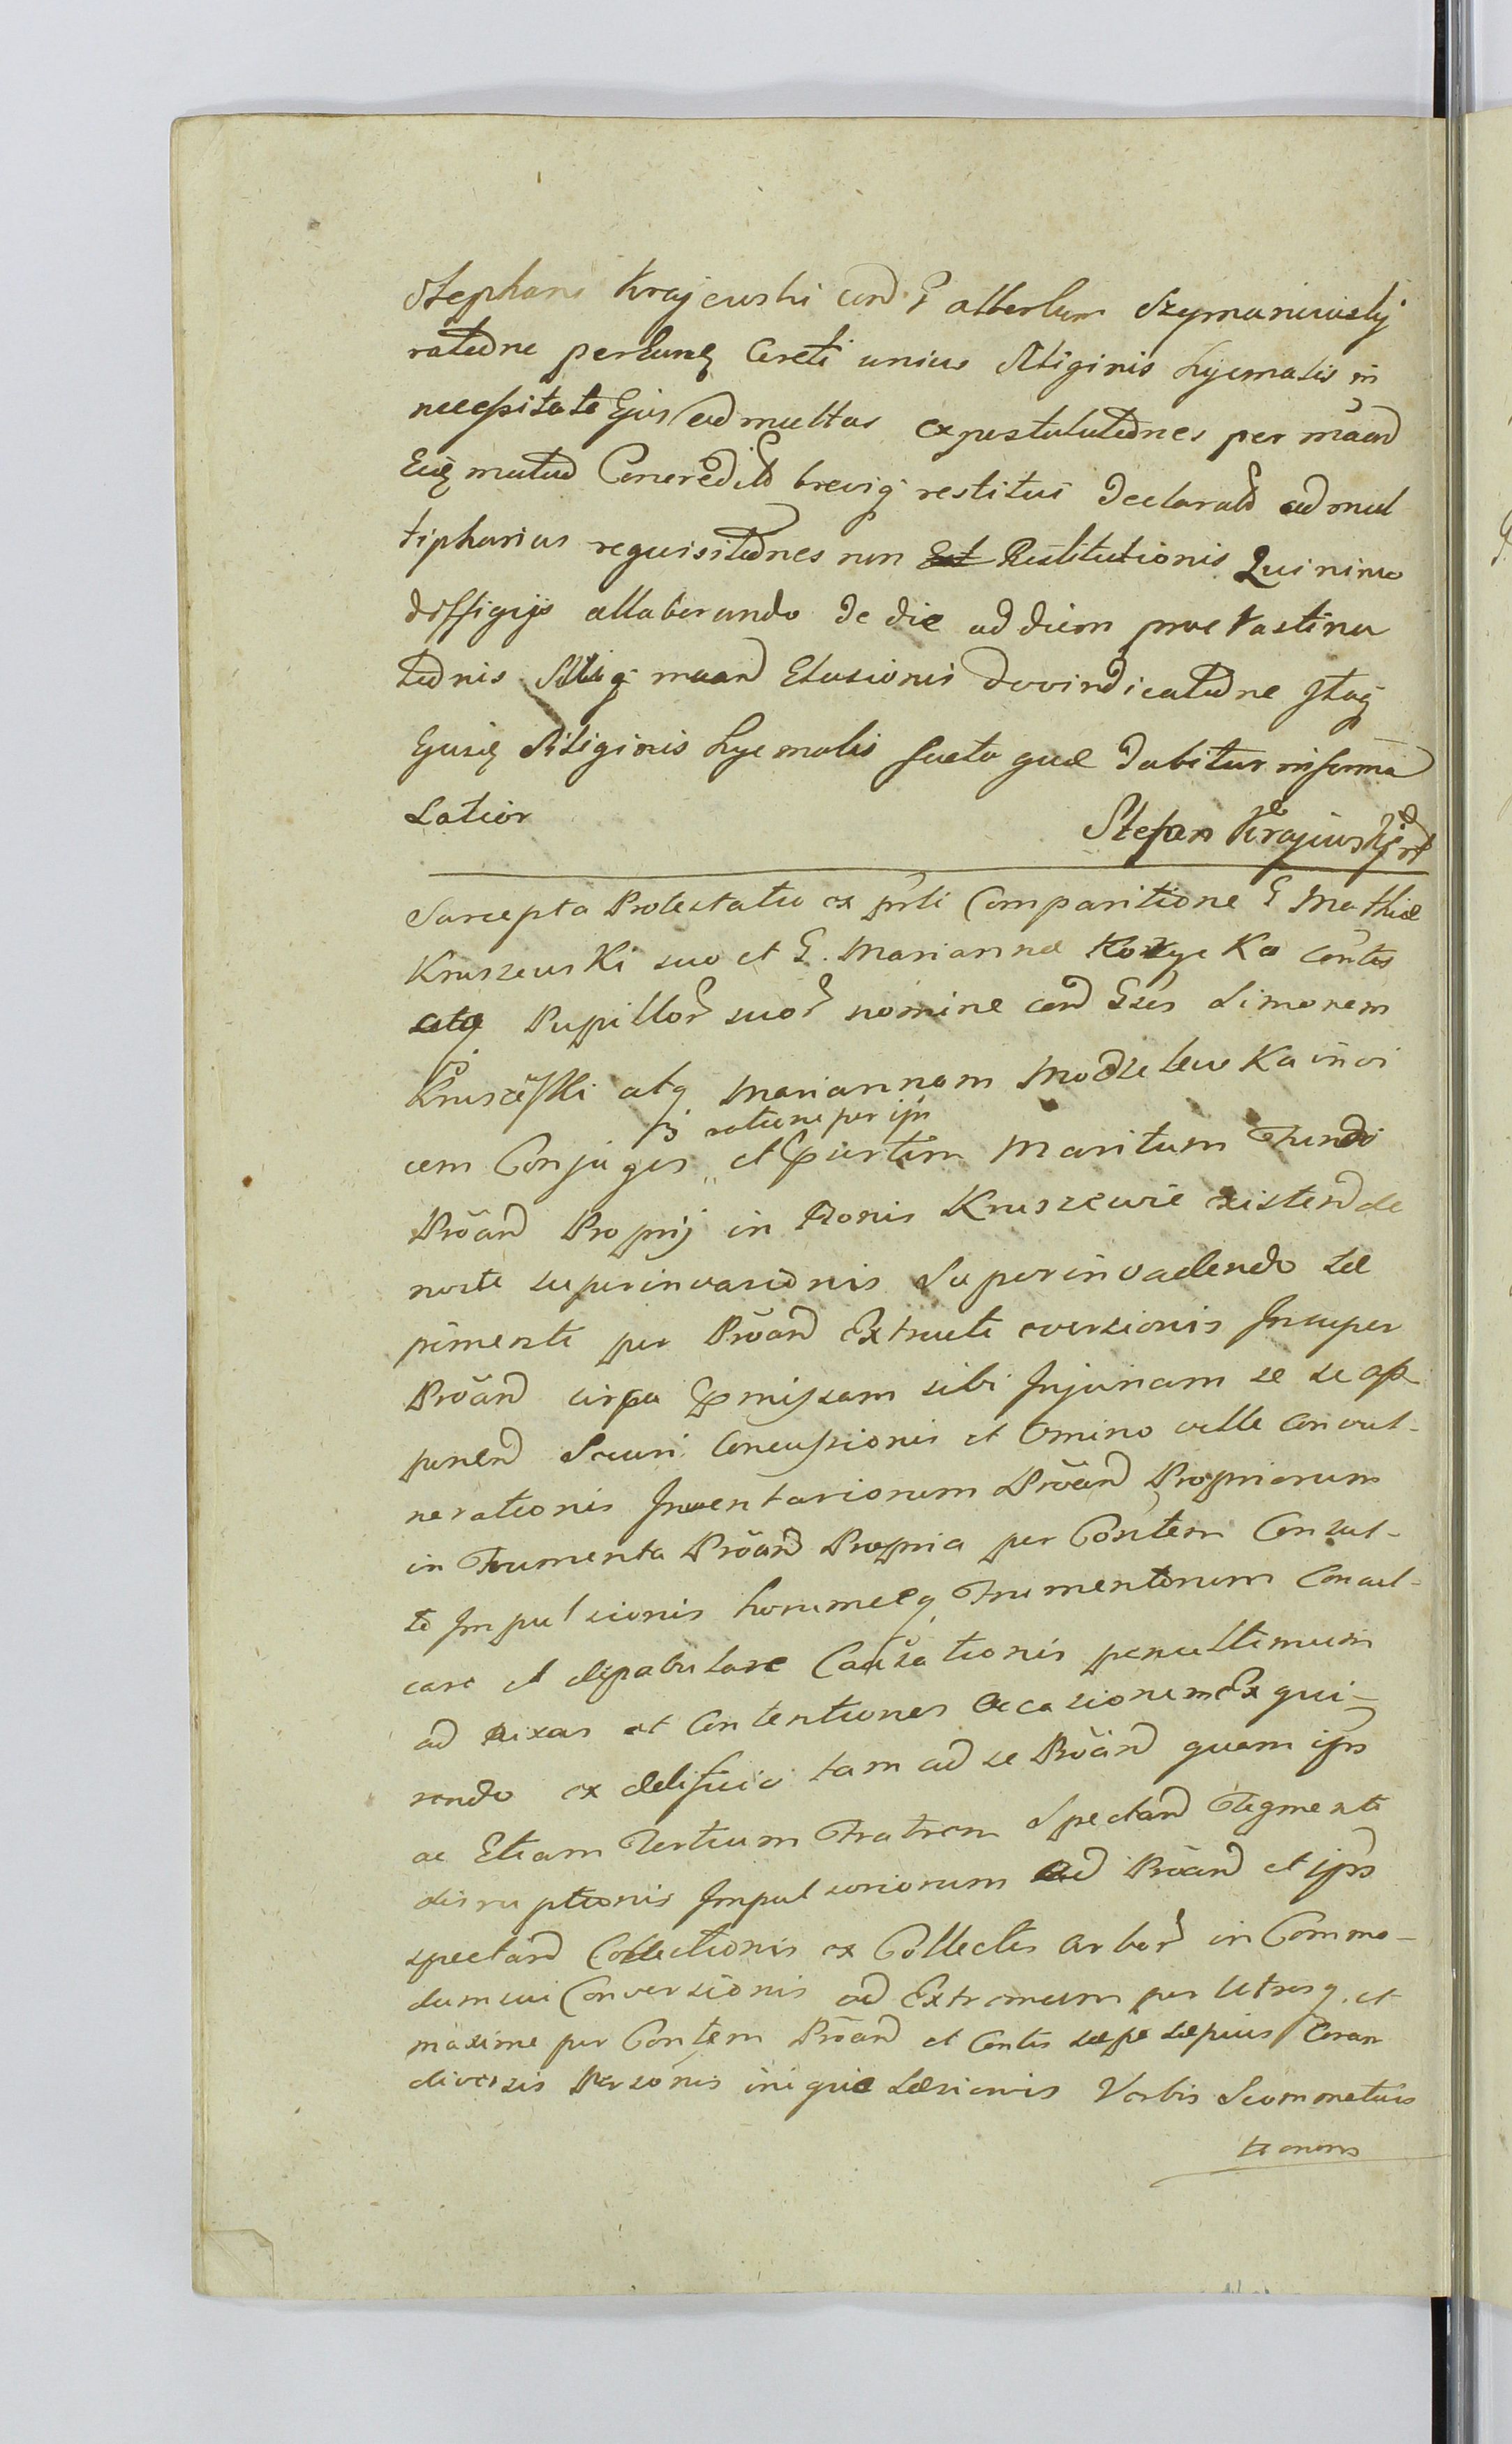 Stephani Krajewski cond G albertum Szymaniwskj
ratione pertunq Cereti unius Siliginis hyemalis in
necessitate Ejus ad multas expostulationes per maand
Eidq mutuo Concredild brevig restitui declarald ad mul
tipharias requisitiones non Restitutionis Quinimo
diffigijs allaborando de die ad diem procrastina
tionis maand Elusionis dovindicatione Itaq
Ejusq Siliginis hyemalis facta quæ dabitur in forma
Latior
Stefan Krajewskj
Suscepta Protestatio ex prti Comparitione G Mathiæ
Kruszewski suo et G. Mariannæ Contis
atq Pupillor suor nomine cond Gses Simonem
Kruszewski atq Mariannam Modzelewska invi
ratione per ipn
cem Conjuges et Psertim Maritum Fundi
Proand Proprij in Bonis Kruszewie existend de
nocte superinvasionis Superinvadendo Sæ
pimenti per Proand Extructi eversionis Insuper
Proand circa Pmissam sibi Injuriam se se op
ponend Securi Concussionis et Omnino velle Convul-
nerationis Inventariorum Proand Propriorum
in Frumenta Proand Propria per Contem Consul-
to Impulsionis horumceq Frumentorum Concul-
care et depabulare Causationis penultimum
ad rixas et Contentiones Occasionem Exqui-
rendo ex ædificio tam ad se Proand quam ipm
ac Etiam Tertium Fratrem Spectand Tegmenti
disruptionis Impulsoriorum ad Proand et ipm
spectand Collectionis ex Collectis arbor in Commo-
dum sui Conversionis ad Extremum per Utrosq. et
maxime per Contem Proand et Contis sæpe sæpius Coram
diversis Personis iniquie Læsionis Verbis Scommatuis